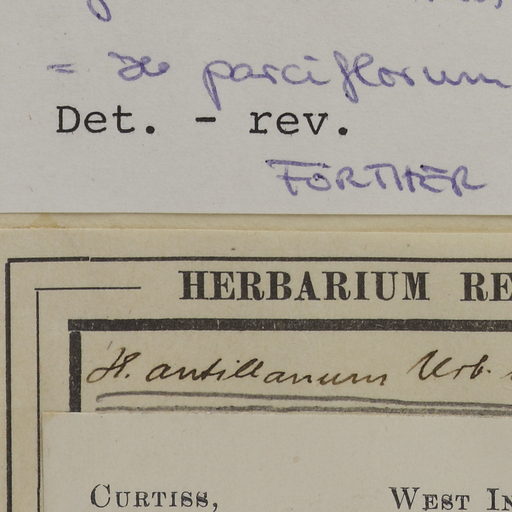 = H parciflorum
Det. - rev.
FÖRTHER
HERBARIUM RE
H. antillanum Urb.
CURTISS, WEST IN